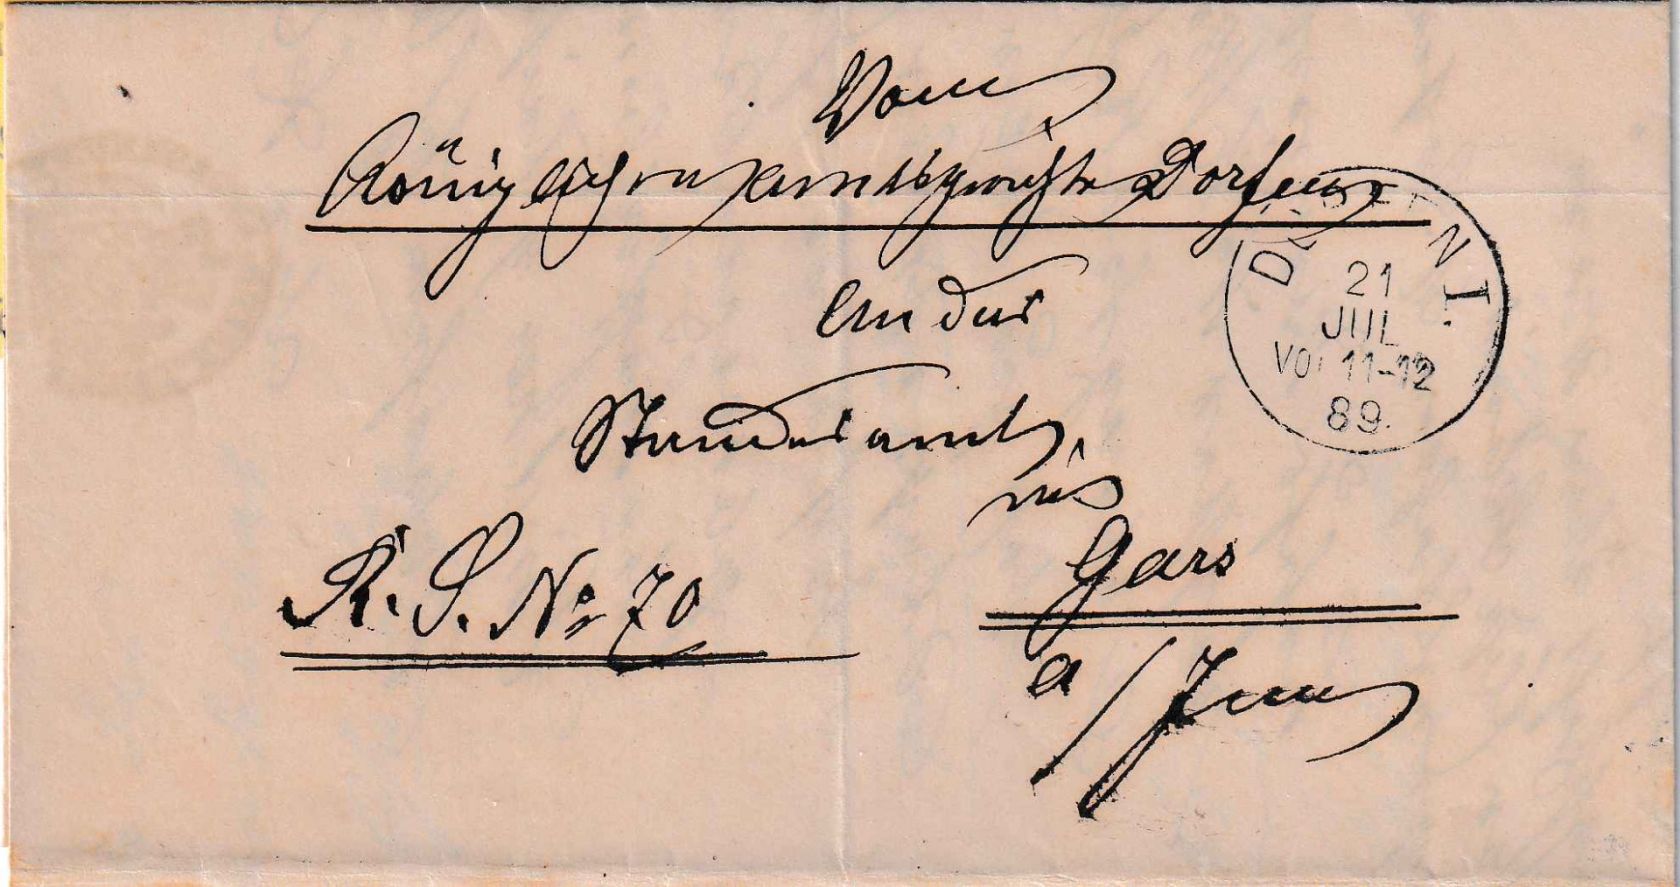 Vom
Königlichen Amtsgerichte Dorfen
An das
Standesamt
in
Gars
a/Inn
R. S. No 70
DORFEN I.
21
JUL
VOR 11-12
89.